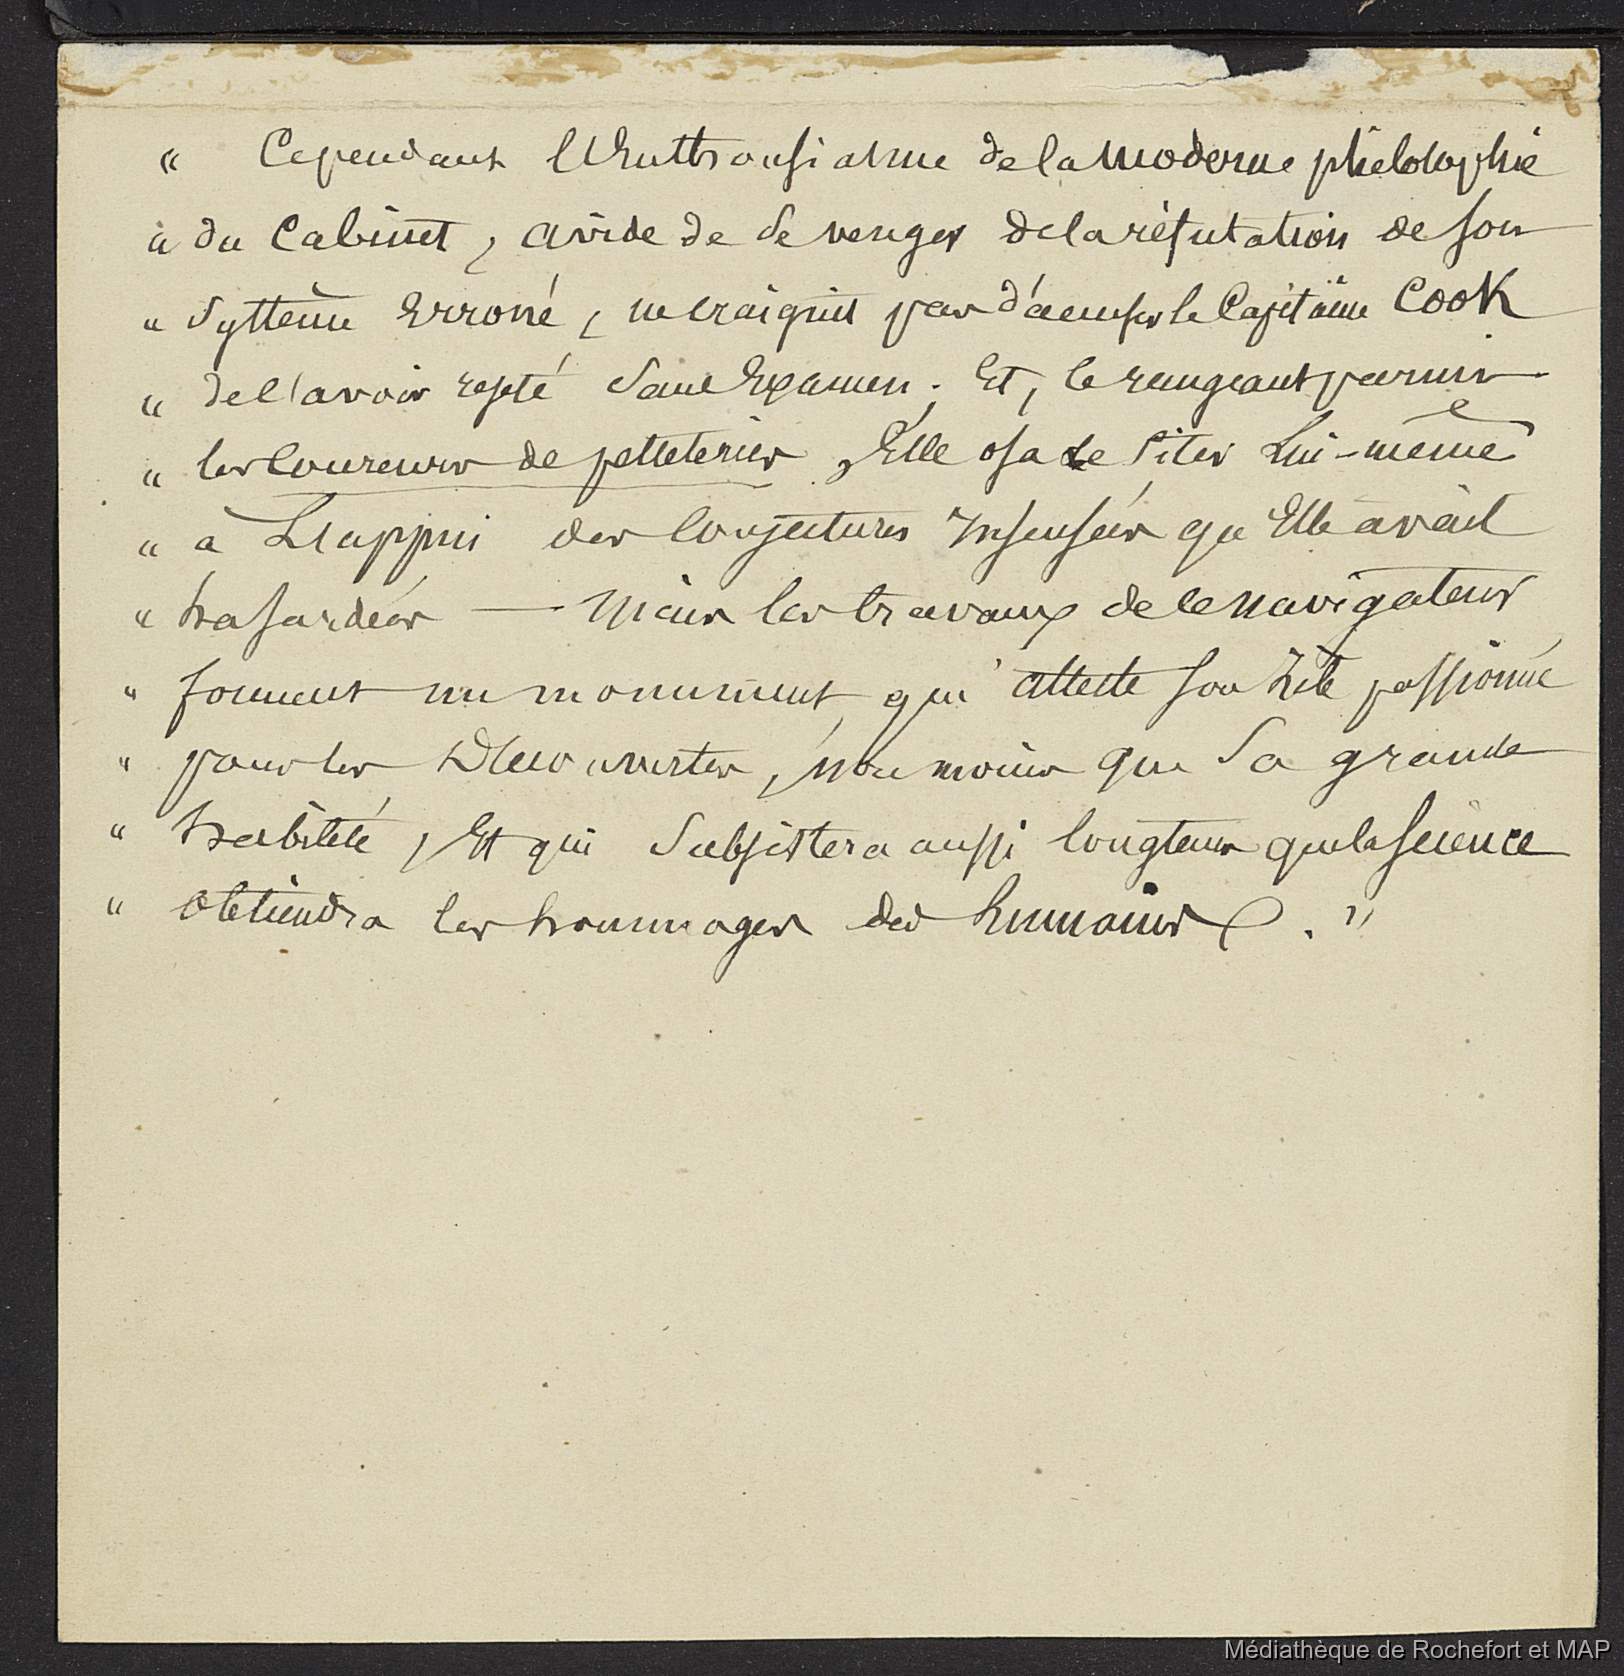 « Cependant l'Enthousiasme de la moderne philosophie
« du Cabinet, avide de se venger de la réfutation de son
« Systême Erroné, ne craignit pas d'accuser le Capitaine Cook
« de l'avoir rejeté sans Examen. Et, le rangeant parmi
« les Coureurs de pelleteries, Elle osa le Citer Lui-même
« à L'appui des Conjectures Insensées qu'Elle avait
« hasardées — Mais les travaux de ce navigateur
« forment un monument qui atteste son Zèle passionné
« pour les Découvertes, non moins que Sa grande
« habileté, Et qui Subsistera aussi longtems que la Science
« obtiendra les hommages des humains. »
Médiathèque de Rochefort et MAP